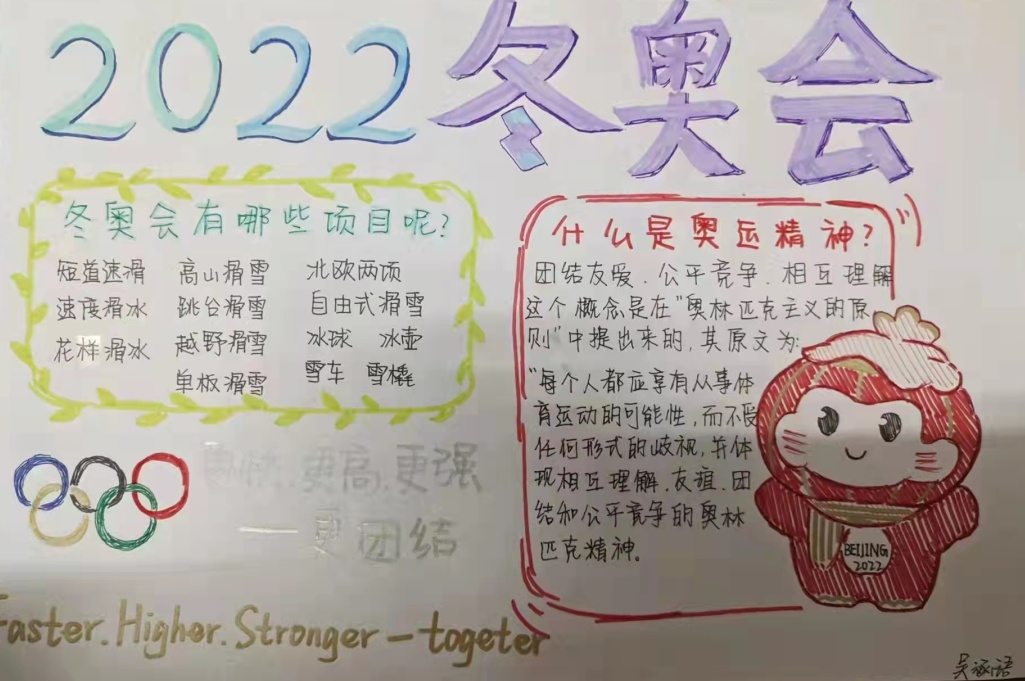 2022冬奥会
冬奥会有哪些项目呢?
短道速滑 高山滑雪 北欧两项
速度滑冰 跳台滑雪 自由式滑雪
花样滑冰 越野滑雪 冰球 冰壶
单板滑雪 雪车 雪橇
更快.更高.更强
—更团结
Faster.Higher.Stronger—togeter
什么是奥运精神?
团结友爱、公平竞争、相互理解
这个概念是在"奥林匹克主义的原
则"中提出来的,其原文为:
"每个人都应享有从事体
育运动的可能性,而不受
任何形式的歧视,并体
现相互理解、友谊、团
结和公平竞争的奥林
匹克精神。
BEIJING
2022